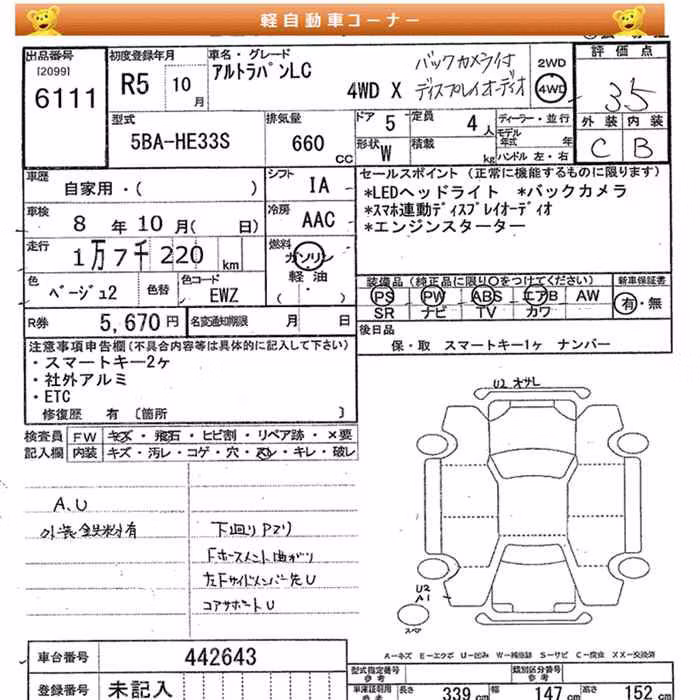 軽自動車コーナー
出品番号
[2099]
6111
初度登録年月
R5 10月
車名・グレード
アルトラパンLC
4WD X
バックカメラ付
ディスプレイオーディオ
2WD
4WD
評価点
3.5
外装 内装
C B
型式
5BA-HE33S
排気量
660 CC
ドア 5
定員 4 人
形状 W
積載 kg
ディーラー・並行
モデル年式 年
ハンドル 左・右
車歴
自家用・( )
シフト
IA
車検
8 年 10 月( 日)
冷房
AAC
走行
1万7千220 km
燃料
ガソリン
軽・油
( )
色
ベージュ2
色替
色コード
EWZ
R券 5,670 円
名変通知期限 月 日
セールスポイント (正常に機能するものに限ります)
*LEDヘッドライト *バックカメラ
*スマホ連動ディスプレイオーディオ
*エンジンスターター
装備品(純正品に限り○をつけてください)
新車保証書
PS PW ABS エアB AW
SR ナビ TV カワ
有・無
後日品
保・取 スマートキー1ヶ ナンバー
注意事項申告欄(不具合内容等は具体的に記入して下さい)
・スマートキー2ヶ
・社外アルミ
・ETC
修復歴 有 〔箇所 〕
検査員
記入欄
FW キズ・飛石・ヒビ割・リペア跡・×要
内装 キズ・汚レ・コゲ・穴・スレ・キレ・破レ
A.U
外装鉄粉有
下廻りPマリ
Fホースメント曲がり
左Fサイドメンバー先U
コアサポートU
U2 オサレ
U2
A1
スペア
A-キズ E-エクボ U-凹み W-補修跡 S-サビ C-腐食 XX-交換済
車台番号 442643
登録番号 未記入
型式指定番号
参考
類別区分番号
参考
車庫証明用
参考
長さ 339 cm
幅 147 cm
高さ 152 cm